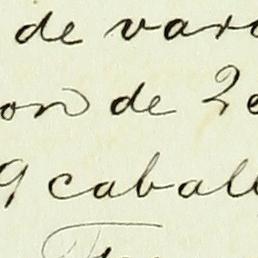 de vara
on de 20
9 caball